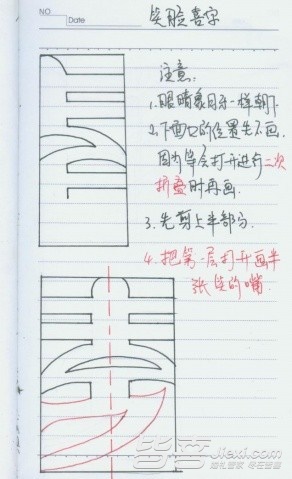 NO
Date
笑脸喜字
注意:
1.眼睛象月牙一样朝下
2.下面口的位置先不画.
因为等会打开进行二次
折叠时再画.
3.先剪上半部分
4.把第一层打开画半
张笑的嘴.
Jiexi.com
婚礼管家 尽在皆喜